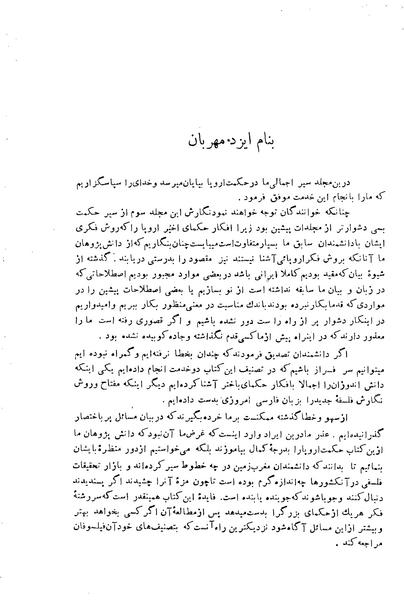 بنام ایزد مهربان
درین مجلد سیر اجمالی ما در حکمت اروپا بپایان میرسد و خدای را سپاسگزاریم
که ما را بانجام این خدمت موفق فرمود.
چنانکه خوانندگان توجه خواهند نمود نگارش این مجلد سوم از سیر حکمت
بسی دشوارتر از مجلدات پیشین بود زیرا افکار حکمای اخیر اروپا را که روش فکری
ایشان با دانشمندان سابق ما بسیار متفاوت است میبایست چنان بنگاریم که از دانش‌پژوهان
ما آنانکه بروش فکر اروپائی آشنا نیستند نیز مقصود را بدرستی دریابند. گذشته از
شیوهٔ بیان که مقید بودیم کاملا ایرانی باشد در بعضی موارد مجبور بودیم اصطلاحاتی که
در زبان و بیان ما سابقه نداشته است از نو بسازیم یا بعضی اصطلاحات پیشین را در
مواردی که قدما بکار نبرده بودند باندک مناسبت در معنی منظور بکار ببریم و امیدواریم
در اینکار دشوار پر از راه راست دور نشده باشیم و اگر قصوری رفته است ما را
معذور دارند که در اینراه پیش از ما کسی قدم نگذاشته و جاده کوبیده نشده بود.
اگر دانشمندان تصدیق فرمودند که چندان بخطا نرفته‌ایم و گمراه نبوده ایم
میتوانیم سرفراز باشیم که در تصنیف این کتاب دو خدمت انجام داده‌ایم یکی اینکه
دانش اندوزان را اجمالا بافکار حکمای باختر آشنا کرده‌ایم دیگر اینکه مفتاح وروش
نگارش فلسفهٔ جدید را بزبان فارسی امروزی بدست داده‌ایم.
از سهو و خطا گذشته ممکنست بر ما خرده بگیرند که در بیان مسائل پر باختصار
گذرانیده‌ایم. عذر ما در این ایراد وارد اینست که غرض ما آن نبود که دانش پژوهان ما
از این کتاب حکمت اروپا را بدرجهٔ کمال بیاموزند بلکه میخواستیم از دور منظره بایشان
بنمائیم تا بدانند که دانشمندان مغرب زمین در چه خطوط سیر کرده‌اند و بازار تحقیقات
فلسفی در آنکشورها چه اندازه گرم بوده است تا چون مزهٔ آنرا چشیدند اگر پسندیدند
دنبال کنند وجویا شوند که جوینده یابنده است. فایدهٔ این کتاب همینقدر است که سررشتهٔ
فکر هریک از حکمای بزرگ را بدست میدهد پس از مطالعهٔ آن اگر کسی بخواهد بهتر
و بیشتر از این مسائل آگاه شود نزدیکترین راه آنست که بتصنیف‌های خود آن فیلسوفان
مراجعه کند.